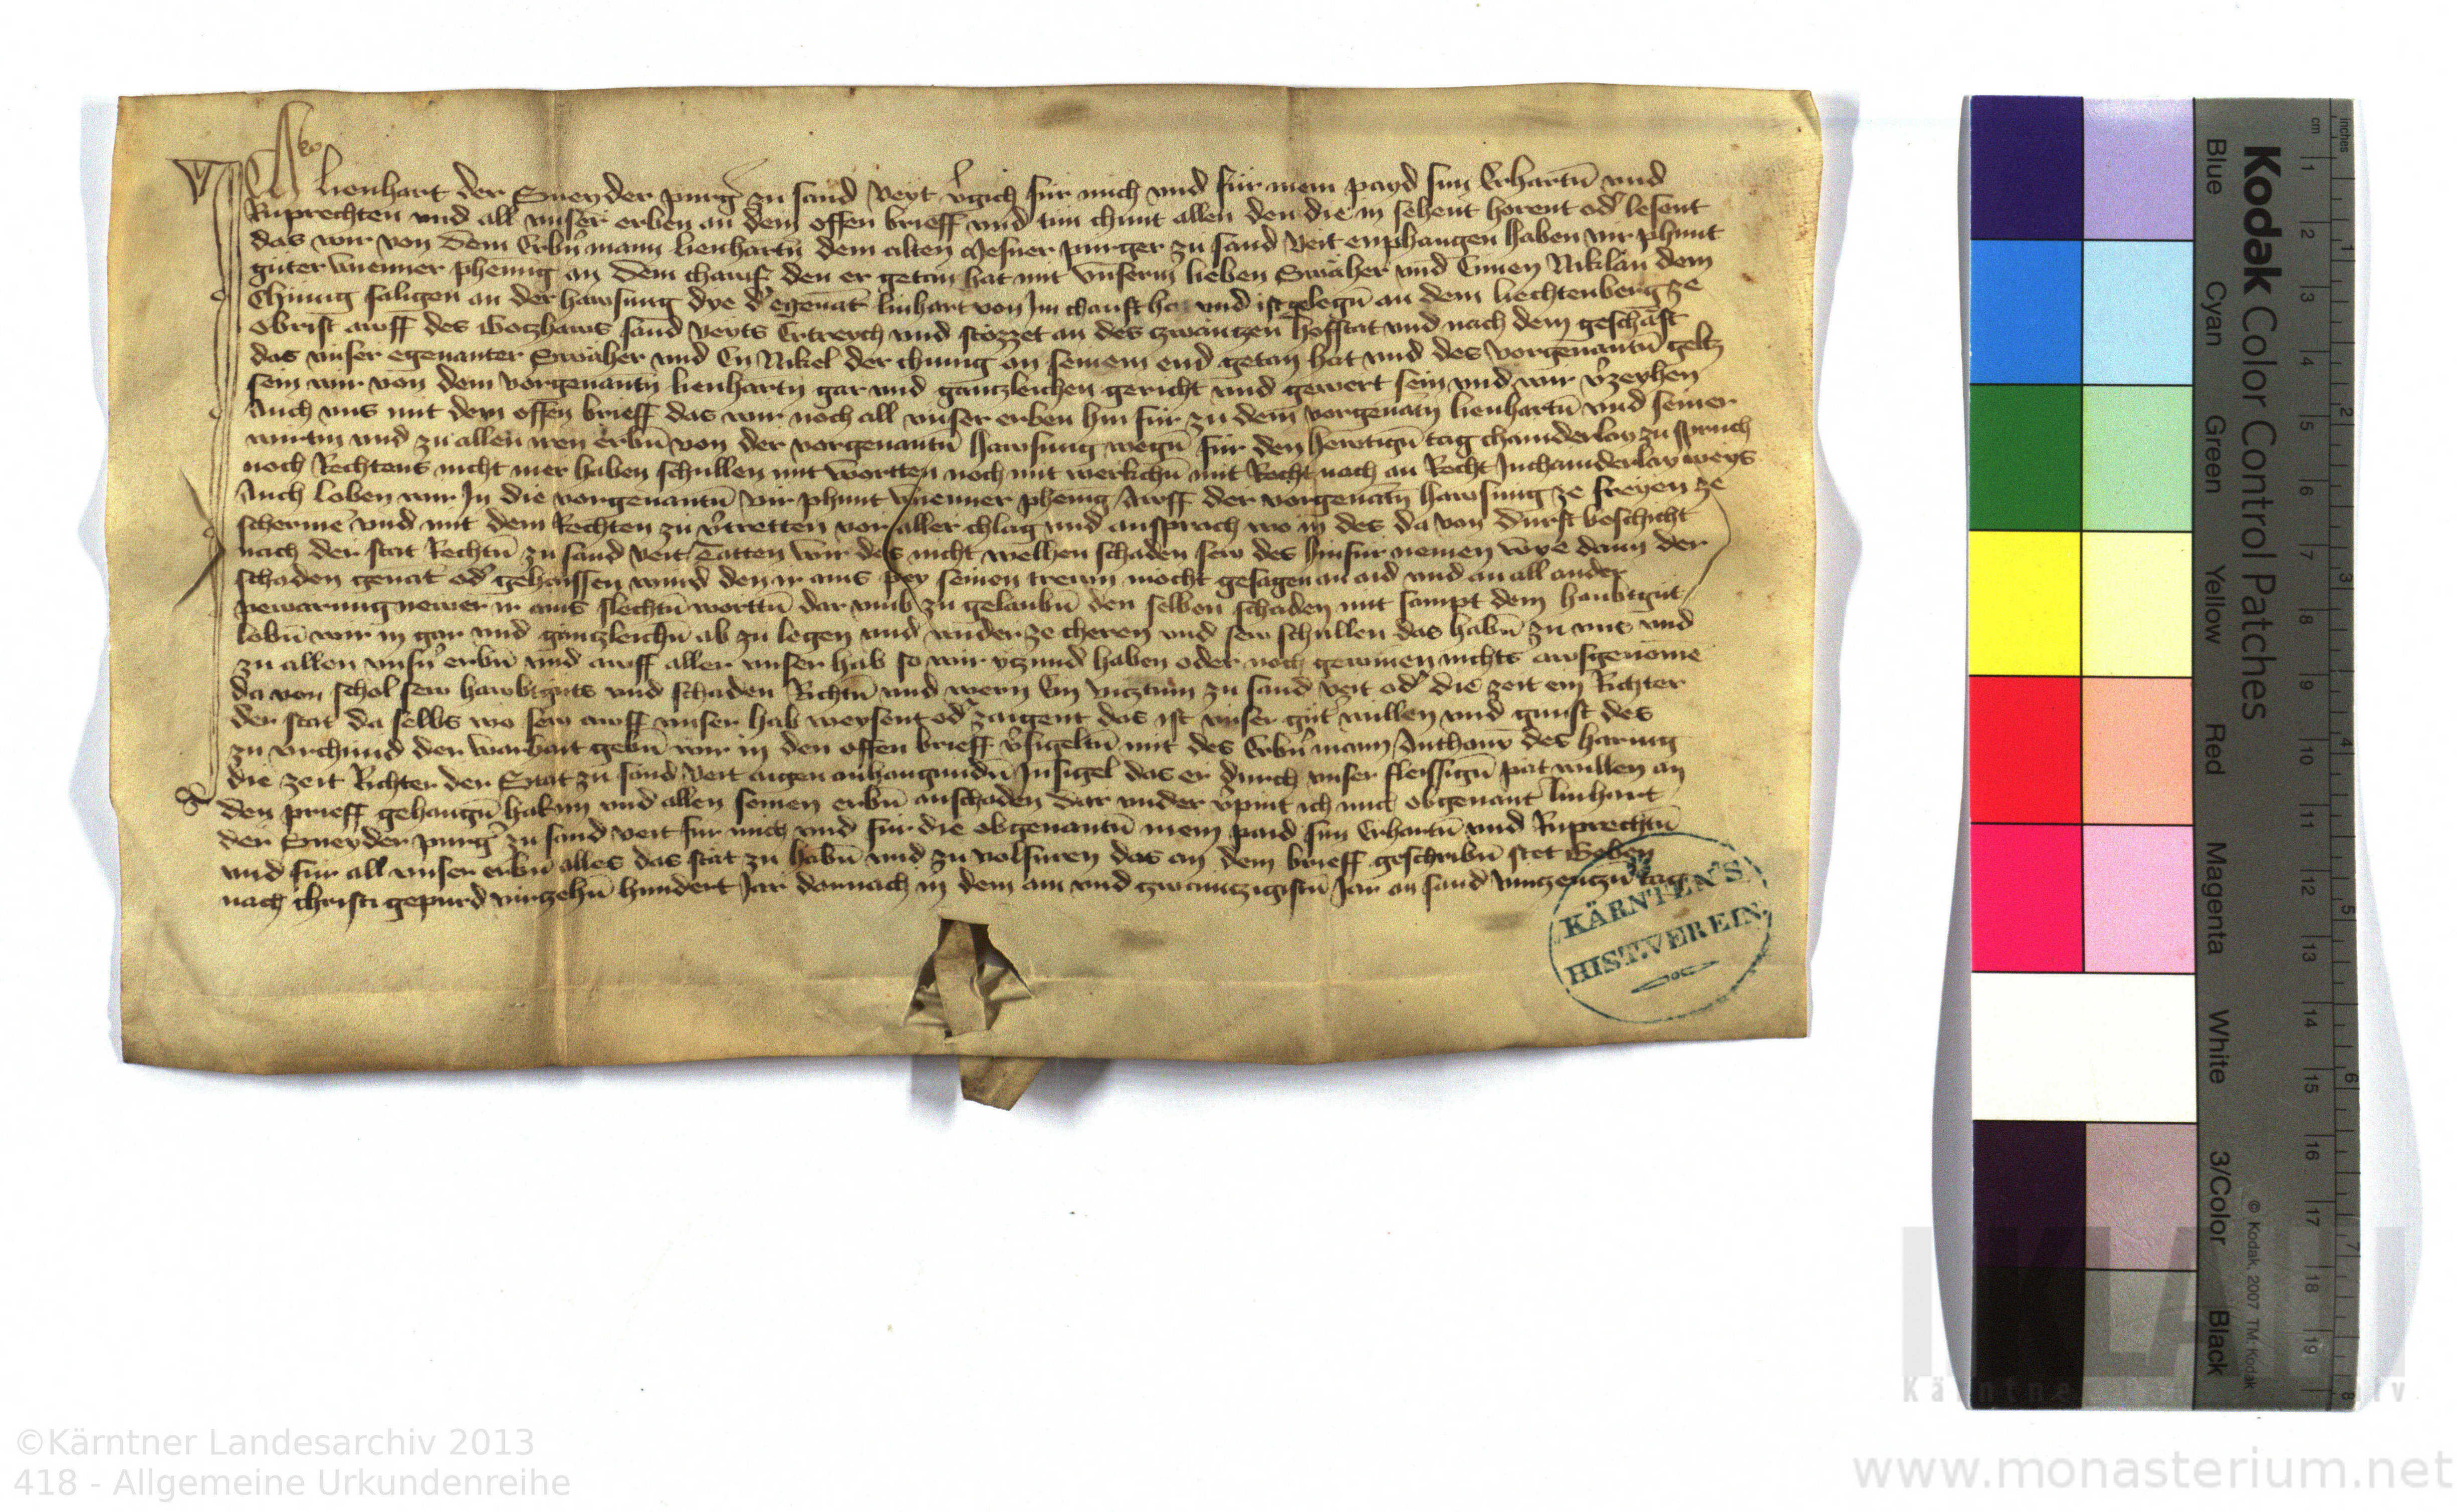 Ich lienhart der Sneyder purg̾ zu sand Veyt v̾gich für mich vnd für mein payd sun Erhartn̄ vnd
Ruprechten vnd all vnser erben an dem offen brieff vnd tun chunt allen den die in sehent horent od̾ lesent
das wir von dem Erbn̄ mann lienhartn̄ dem alten Mesner purger zu sand Veit enphangen haben vir phunt
guter wienner phenig an dem chawf den er getan hat mit vnserm lieben Swäher vnd Enen Niklan dem
Chünig saligen an der hawsung dye d̾ egenāt linhart von Im chauft hat vnd ist gelegn̄ an dem liechtenberg ze
obrist awff des Gotzhaws sand Veyts Ertreych vnd stozzet an des zwantzen hofstat vnd nach dem geschäft
das vnser egenanter Swäher vnd En Nikel der chunig an seinem end getan hat vnd des vorgenantn̄ geltz
sein wir von dem vorgenantn̄ lienhartn gar vnd gantzleichen gericht vnd gewert sein vnd wir v̾zeyhen
Auch vns mit dem offen brieff das wir noch all vnser erben hin für zu dem vorgenātn̄ lienhartn̄ vnd seiner
wirtin vnd zu allen iren erbn̄ von der vorgenantn̄ hawsung wegn̄ für den hewtign̄ tag chainderlay zu spruch
noch Rechtens nicht mer haben schullen mit wortten noch mit werkchn̄ mit Recht noch an Recht In chainderlay weys
Auch loben wir In die vorgenantn̄ vir phunt wienner phenig Awff der vorgenātn̄ hawsung ze freyen ze
scherme vnd mit dem Rechten zu v̾tretten vor aller chlag vnd ansprach wo in des da von durft beschicht
nach der stat Rechtn̄ zu sand Veit Tätten wir des nicht welhen schaden sew des hinfur nemen wye dann der
schaden genāt od̾ gehaissen wurd den ir ains pey seinen trewn mocht gesagen an aid vnd an all ander
pewarung newer ir ains slechtn̄ worttn̄ dar vmb zu gelaubn̄ den selben schaden mit sampt dem haubtgut
lobn̄ wir in gar vnd gäntzleichn̄ ab zu legen vnd wider ze cheren vnd sew schullen das habn̄ zu vns vnd
zu allen vnsn̾ erbn̄ vnd awff aller vnser hab so wir yetzund haben oder noch gewinen nichts awsgenome
da von schol sew hawbtguts vnd schaden Richtn̄ vnd wern Ein vicztum zu sand Veit od̾ die zeit ein Richter
der stat da selbs wo sew awff vnser hab weysent od̾ zaigent das ist vnser gut̾ willen vnd gunst des
zu vrchund der warhait gebn̄ wir in den offen brieff v̾sigeltn̄ mit des Erbn̄ mann Anthonÿ des harnig
die zeit Richter der Stat zu sand Veit aigen anhangundn̄ Insigel das er durch vnser fleissign̄ pät willen an
den prieff gehangn̄ hat im vnd allen seinen erbn̄ an schaden dar vnder v̾pint ich mich obgenant linhart
der Sneyder purg̾ zu sand Veit für mich vnd für die obgenantn̄ mein paid sun Erhartn̄ vnd Ruprechtn̄
vnd für all vnser erbn̄ alles das stät zu habn̄ vnd zu volfuren das an dem brieff geschribn̄ stet Geben
nach christi gepurd virtzehn̄ hundert Jar darnach in dem ain vnd zwaintzigistn̄ Jar an sand vintzentzn̄ tag
KÄRNTEN'S
HIST. VEREIN.
Kodak Color Control Patches
Blue Cyan Green Yellow Red Magenta White 3/Color Black
© Kodak, 2007 TM: Kodak
cm 1 2 3 4 5 6 7 8 9 10 11 12 13 14 15 16 17 18 19
inches 1 2 3 4 5 6 7 8
©Kärntner Landesarchiv 2013
418 - Allgemeine Urkundenreihe
www.monasterium.net